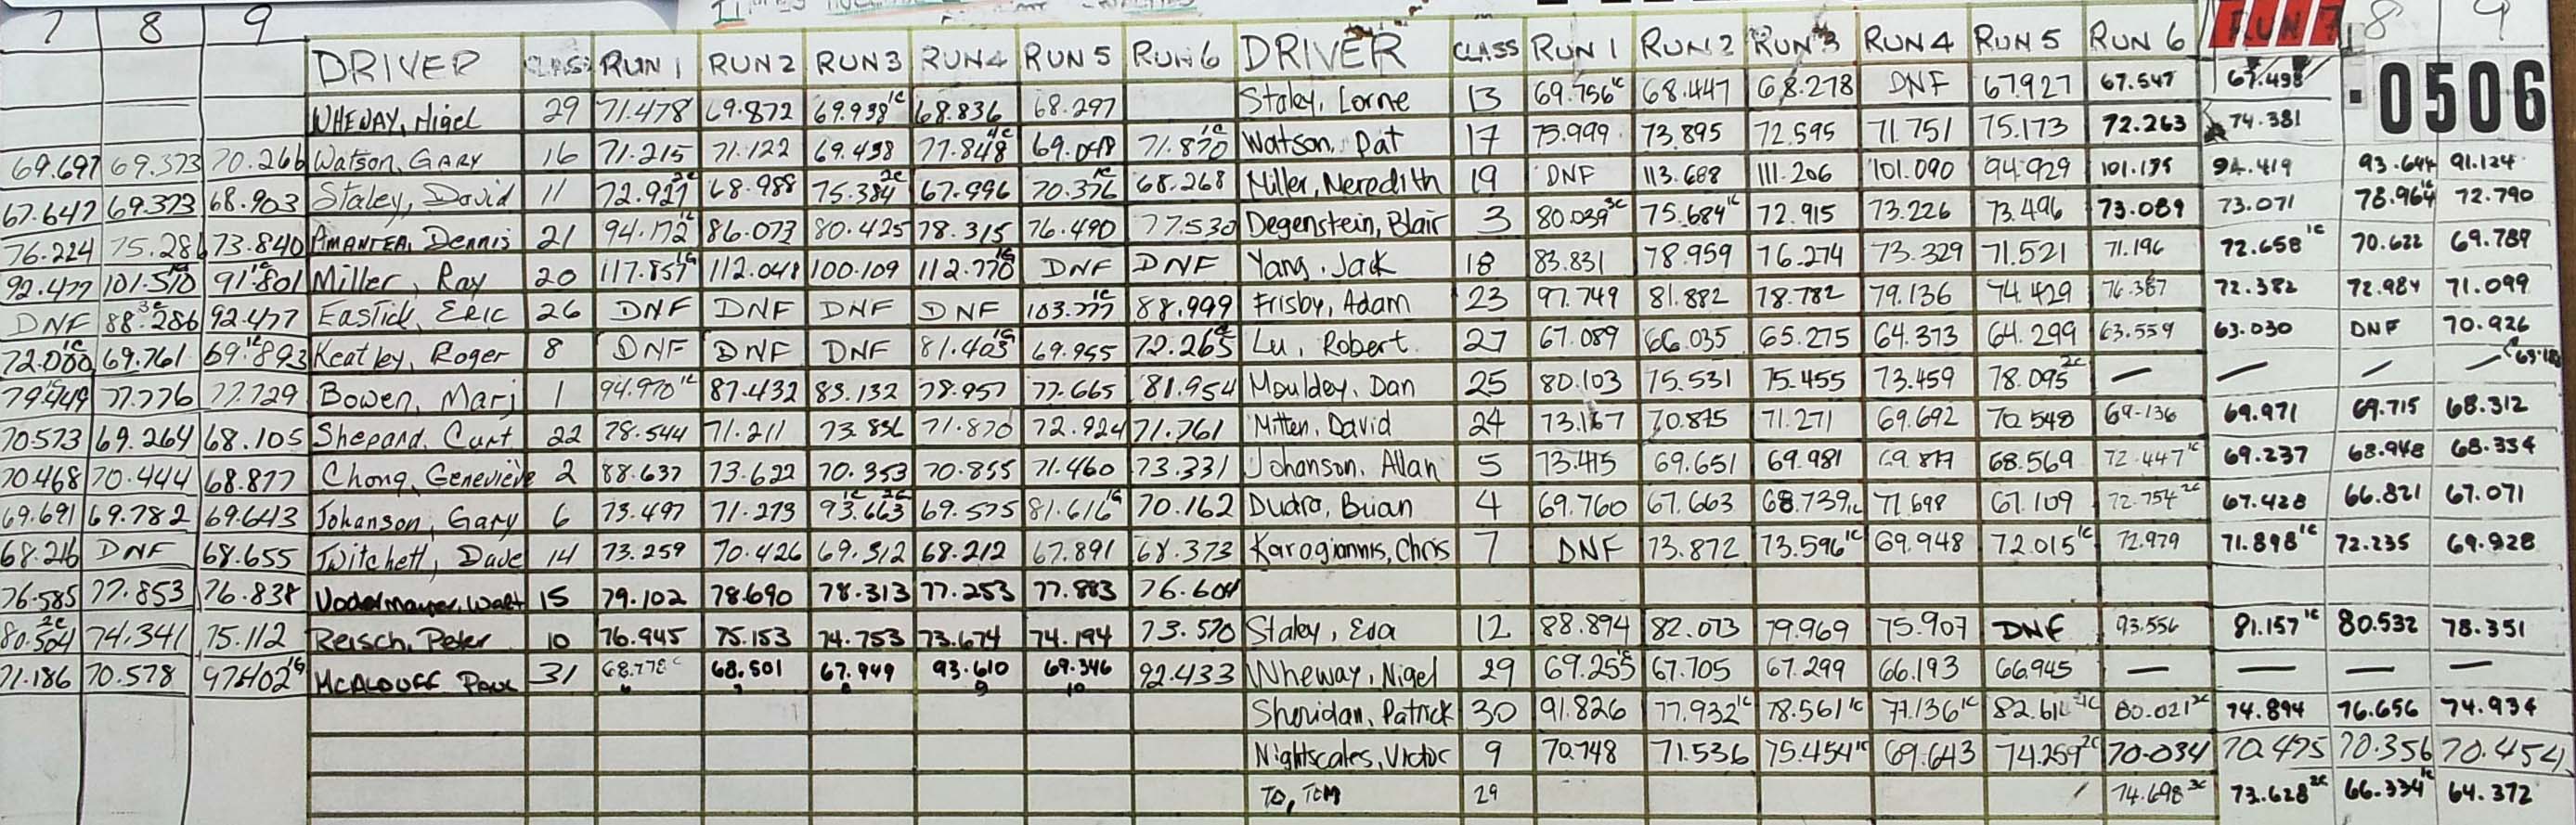 7 8 9 DRIVER CLASS RUN 1 RUN 2 RUN 3 RUN 4 RUN 5 RUN 6 DRIVER CLASS RUN 1 RUN 2 RUN 3 RUN 4 RUN 5 RUN 6 RUN 7 8 9
WHEWAY, Nigel 29 71.478 69.872 69.938 1C 68.836 68.297 Staley, Lorne 13 69.756 1C 68.447 68.278 DNF 67.927 67.547 67.498
·0506
69.697 69.373 70.266 Watson, GARY 16 71.215 71.122 69.498 77.848 69.048 71.870 1C Watson, Pat 17 75.999 73.895 72.595 71.751 75.173 72.263 74.381
67.647 69.373 68.903 Staley, David 11 72.927 2C 68.988 75.384 2C 67.996 70.376 1C 68.268 Miller, Meredith 19 DNF 113.688 111.206 101.090 94.929 101.195 94.419 93.644 91.124
76.224 75.286 73.840 AMANTEA, Dennis 21 94.172 1C 86.073 80.425 78.315 76.490 77.530 Degenstein, Blair 3 80.039 3C 75.684 1C 72.915 73.226 73.496 73.089 73.071 78.964 1C 72.790
92.477 101.570 91.801 Miller, Ray 20 117.857 112.048 100.109 112.770 DNF DNF Yang, Jack 18 83.831 78.959 76.274 73.329 71.521 71.196 72.658 1C 70.622 69.789
DNF 88.286 3C 92.477 EASTICK, ERIC 26 DNF DNF DNF DNF 103.777 1C 88.999 Frisby, Adam 23 97.749 81.882 78.782 79.136 74.429 76.387 72.382 72.984 71.099
72.000 1C 69.761 69.893 1C Keatley, Roger 8 DNF DNF DNF 81.405 69.955 72.265 Lu, Robert 27 67.089 66.035 65.275 64.373 64.299 63.559 63.030 DNF 70.926
79.449 77.776 77.729 Bowen, Marj 1 94.970 1C 87.432 83.132 78.957 77.665 81.954 Mouldey, Dan 25 80.103 75.531 75.455 73.459 78.095 2C — — — —
70.573 69.264 68.105 Shepard, Curt 22 78.544 71.211 73.836 71.870 72.924 71.761 Mitten, David 24 73.167 70.875 71.271 69.692 70.548 69.136 69.971 69.715 68.312
70.468 70.444 68.877 Chong, Genevieve 2 88.637 73.622 70.353 70.855 71.460 73.331 Johanson, Allan 5 73.415 69.651 69.981 69.877 68.569 72.447 1C 69.237 68.948 68.334
69.691 69.782 69.643 Johanson, Gary 6 73.497 71.273 93.663 69.575 81.616 70.162 Dudra, Brian 4 69.760 67.663 68.739 1C 71.698 67.109 72.754 2C 67.428 66.821 67.071
68.216 DNF 68.655 Twitchett, Dave 14 73.259 70.426 69.512 68.212 67.891 68.373 Karogiannis, Chris 7 DNF 73.872 73.596 1C 69.948 72.015 1C 72.979 71.898 1C 72.235 69.928
76.585 77.853 76.838 Vodermayer, Walt 15 79.102 78.690 78.313 77.253 77.883 76.604
80.504 2C 74.341 75.112 Reisch, Peter 10 76.945 75.153 74.753 73.674 74.194 73.570 Staley, Eda 12 88.894 82.073 79.969 75.907 DNF 93.556 81.157 1C 80.532 78.351
71.186 70.578 97.402 McALDUFF Paul 31 68.778 68.501 67.949 93.610 69.346 92.433 Wheway, Nigel 29 69.255 67.705 67.299 66.193 66.945 — — — —
Sheridan, Patrick 30 91.826 77.932 1C 78.561 1C 77.136 1C 82.616 80.021 2C 74.894 76.656 74.934
Nightscales, Victor 9 70.748 71.536 75.454 1C 69.643 74.259 2C 70.034 70.475 70.356 70.454
TO, TOM 29 74.698 3C 73.628 2C 66.334 1C 64.372